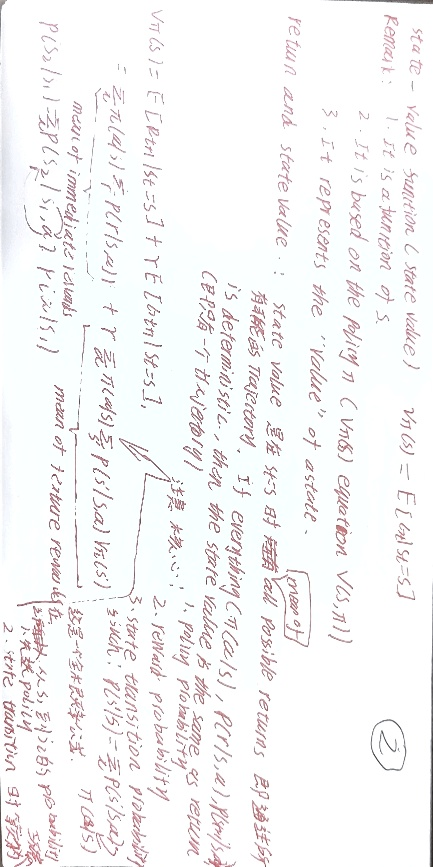 state-value function (state value) Vπ(s) = E[Gt|St=s]
②
Remark: 1. It is a function of s.
2. It is based on the policy π (Vπ(s) equation V(s,π))
3. It represents the "value" of a state.
return and state value: state value 是在 St=s 时 all possible returns 即
mean of
trajectory. If everything (π(a|s), P(r|s,a), P(s'|s,a))
is deterministic, then the state value is the same as return
(即只有一个 trajectory)
Vπ(s) = E[Rt+1|St=s] + γE[Gt+1|St=s],
= Σ π(a|s) Σ P(r|s,a) r + γ Σ π(a|s) Σ P(s'|s,a) Vπ(s')
mean of immediate rewards
mean of future rewards
注意 核心: 1. policy probability
2. reward probability
3. state transition probability
such: P(s'|s) = Σ P(s'|s,a)
π(a|s)
P(S2|S1) = Σ P(S2|S1,a) π(a|S1)
这是一个 公式.
probability
1. policy
2. state transition 时